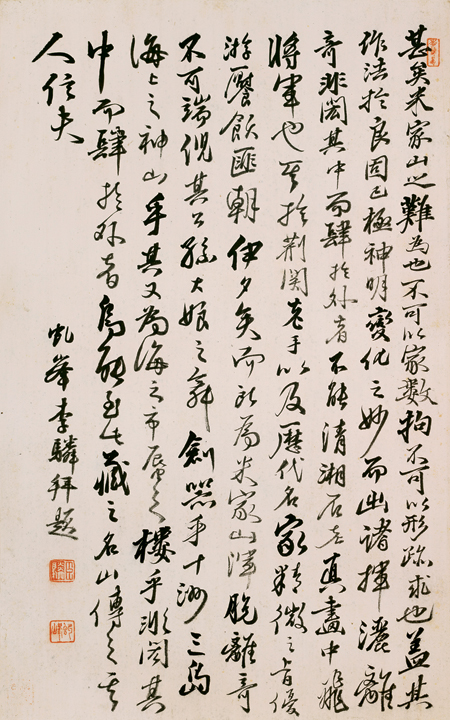 甚矣米家山之難為也不可以家數拘不可以形跡求也蓋其
作法於良固已極神明變化之妙而出諸揮灑離
奇非閎其中而肆於外者不能清湘石老真畫中飛
將軍也其於荊關老手以及歷代名家精微之旨優
游饜飫匪朝伊夕矣而所為米家山渾脫離奇
不可端倪其公孫大娘之舞劍器乎十洲三島
海上之神山乎其又為海之市蜃之樓乎非閎其
中而肆於外者烏能至此藏之名山傳之其
人信夫
虬峯李驎拜題